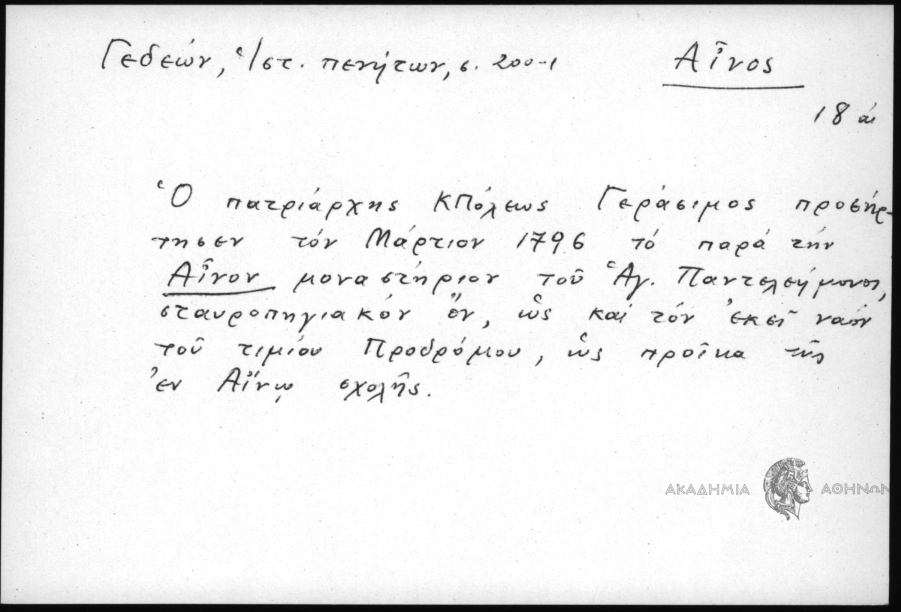 Γεδεών, Ἱστ. πενήτων, σ. 200-1
Αἶνος
18 αι
Ὁ πατριάρχης ΚΠόλεως Γεράσιμος προσήρ-
τησεν τόν Μάρτιον 1796 τό παρά τήν
Αἶνον μοναστήριον τοῦ Ἁγ. Παντελεήμονος,
σταυροπηγιακόν ὄν, ὡς καί τόν ἐκεῖ ναόν
τοῦ τιμίου Προδρόμου, ὡς προῖκα τῆς
ἐν Αἴνῳ σχολῆς.
ΑΚΑΔΗΜΙΑ ΑΘΗΝΩΝ